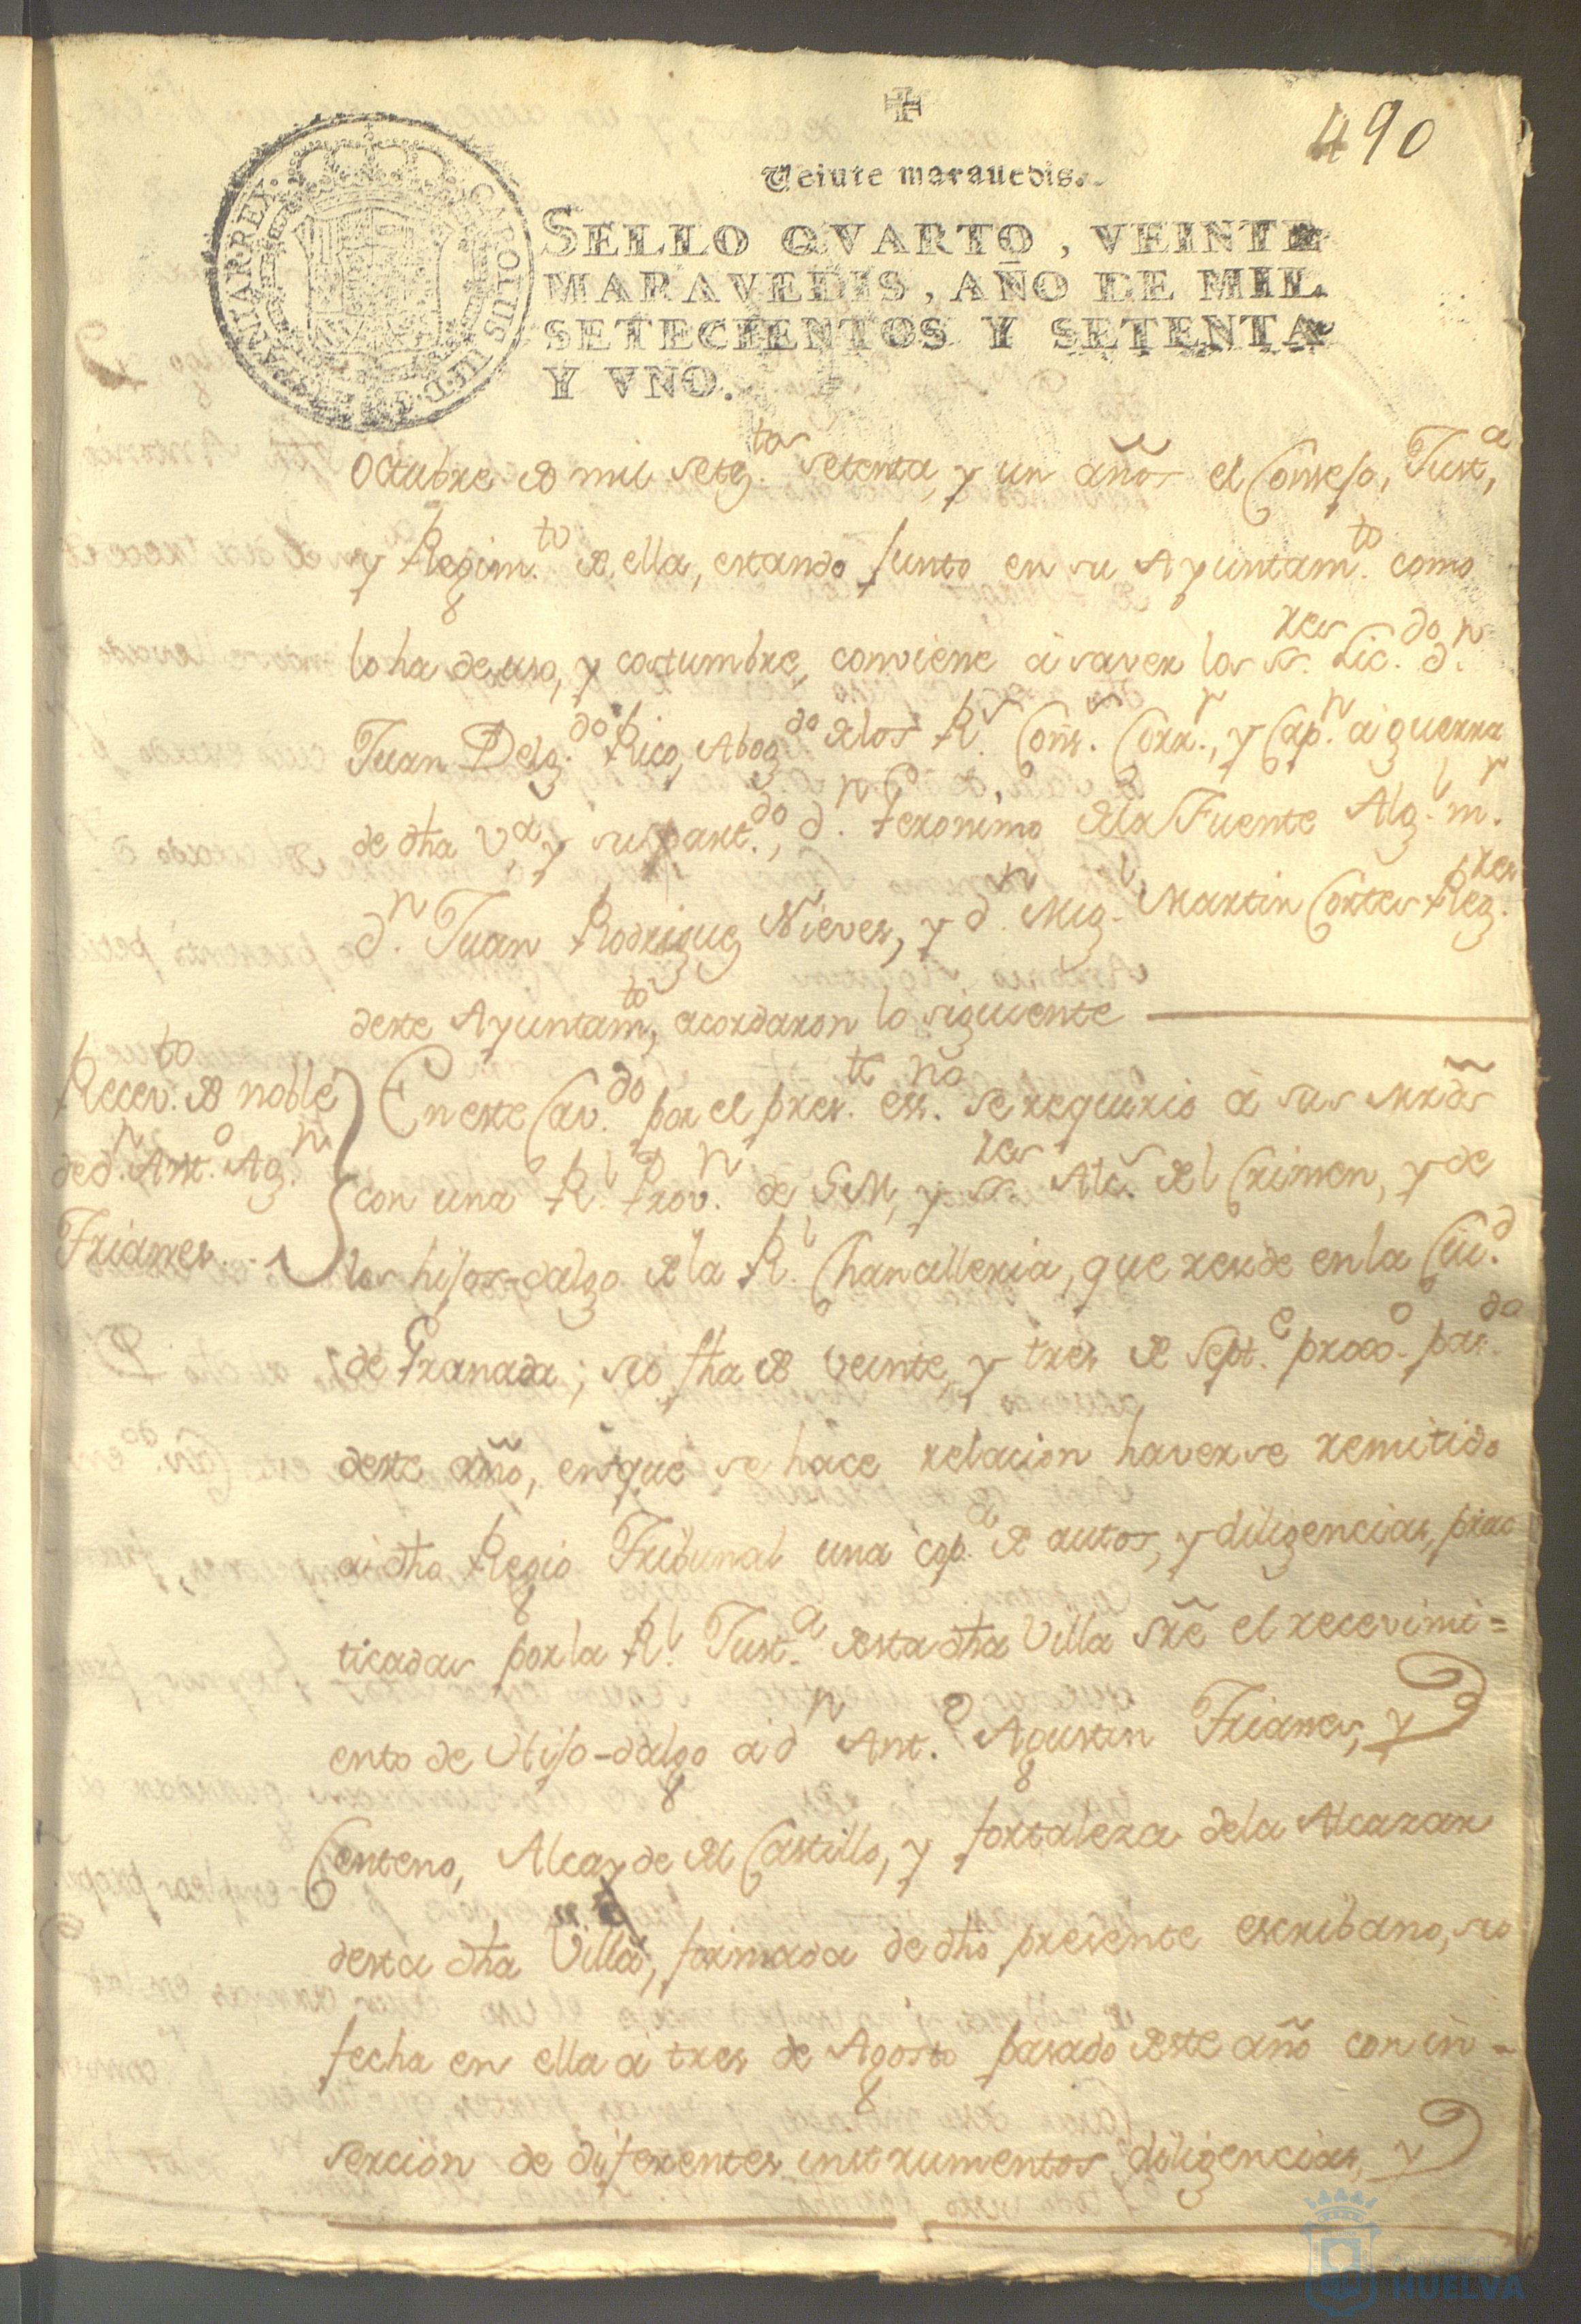 490
Veinte marauedis.
SELLO QVARTO, VEINTE
MARAVEDIS, AÑO DE MIL
SETECIENTOS Y SETENTA
Y VNO.
CAROLUS III D.G. HISPANIAR REX
Octubre de mil setez.tos setenta, y un años el Consejo, Just.a,
y Regim.to de ella, estando junto en su Ayuntam.to como
lo ha de uso, y costumbre, conviene à saver los ss.res Lic.do d.n
Juan Delg.do Rico, Abog.do de los R.s Cons.s Corr.r, y Cap.n à guerra
de dha v.a y su part.do, d.n Geronimo de la Fuente Alg.l m.r
d.n Juan Rodriguez Nieves, y d.n Mig.l Martin Cortes Reg.res
deste Ayuntam.to, acordaron lo siguiente
Recev.to de noble
de d.n Ant.o Ag.n
Frianes
En este Cav.do por el pres.te ess.no se requirio à sus mrds
con una R.l Prov.n de S.M, y ss.res Alc.s del Crimen, y de
los hijos-dalgo de la R.l Chancilleria, que reside en la Ciu.d
de Granada; su fha de veinte, y tres de Sept.e proxo.o pas.do
deste año, en que se hace relacion haverse remitido
a dho Regio Tribunal una cop.a de autos, y diligencias, prac
ticadas por la R.l Just.a desta dha Villa sre el recevimi=
ento de Hijo-dalgo a d.n Ant.o Agustin Frianes, y
Centeno, Alcayde del Castillo, y fortaleza de la Alcazar
desta dha Villa, firmada de dho presente escribano, su
fecha en ella à tres de Agosto pasado deste año con in-
sercion de diferentes instrumentos diligencias, y
Ayuntamiento
HUELVA